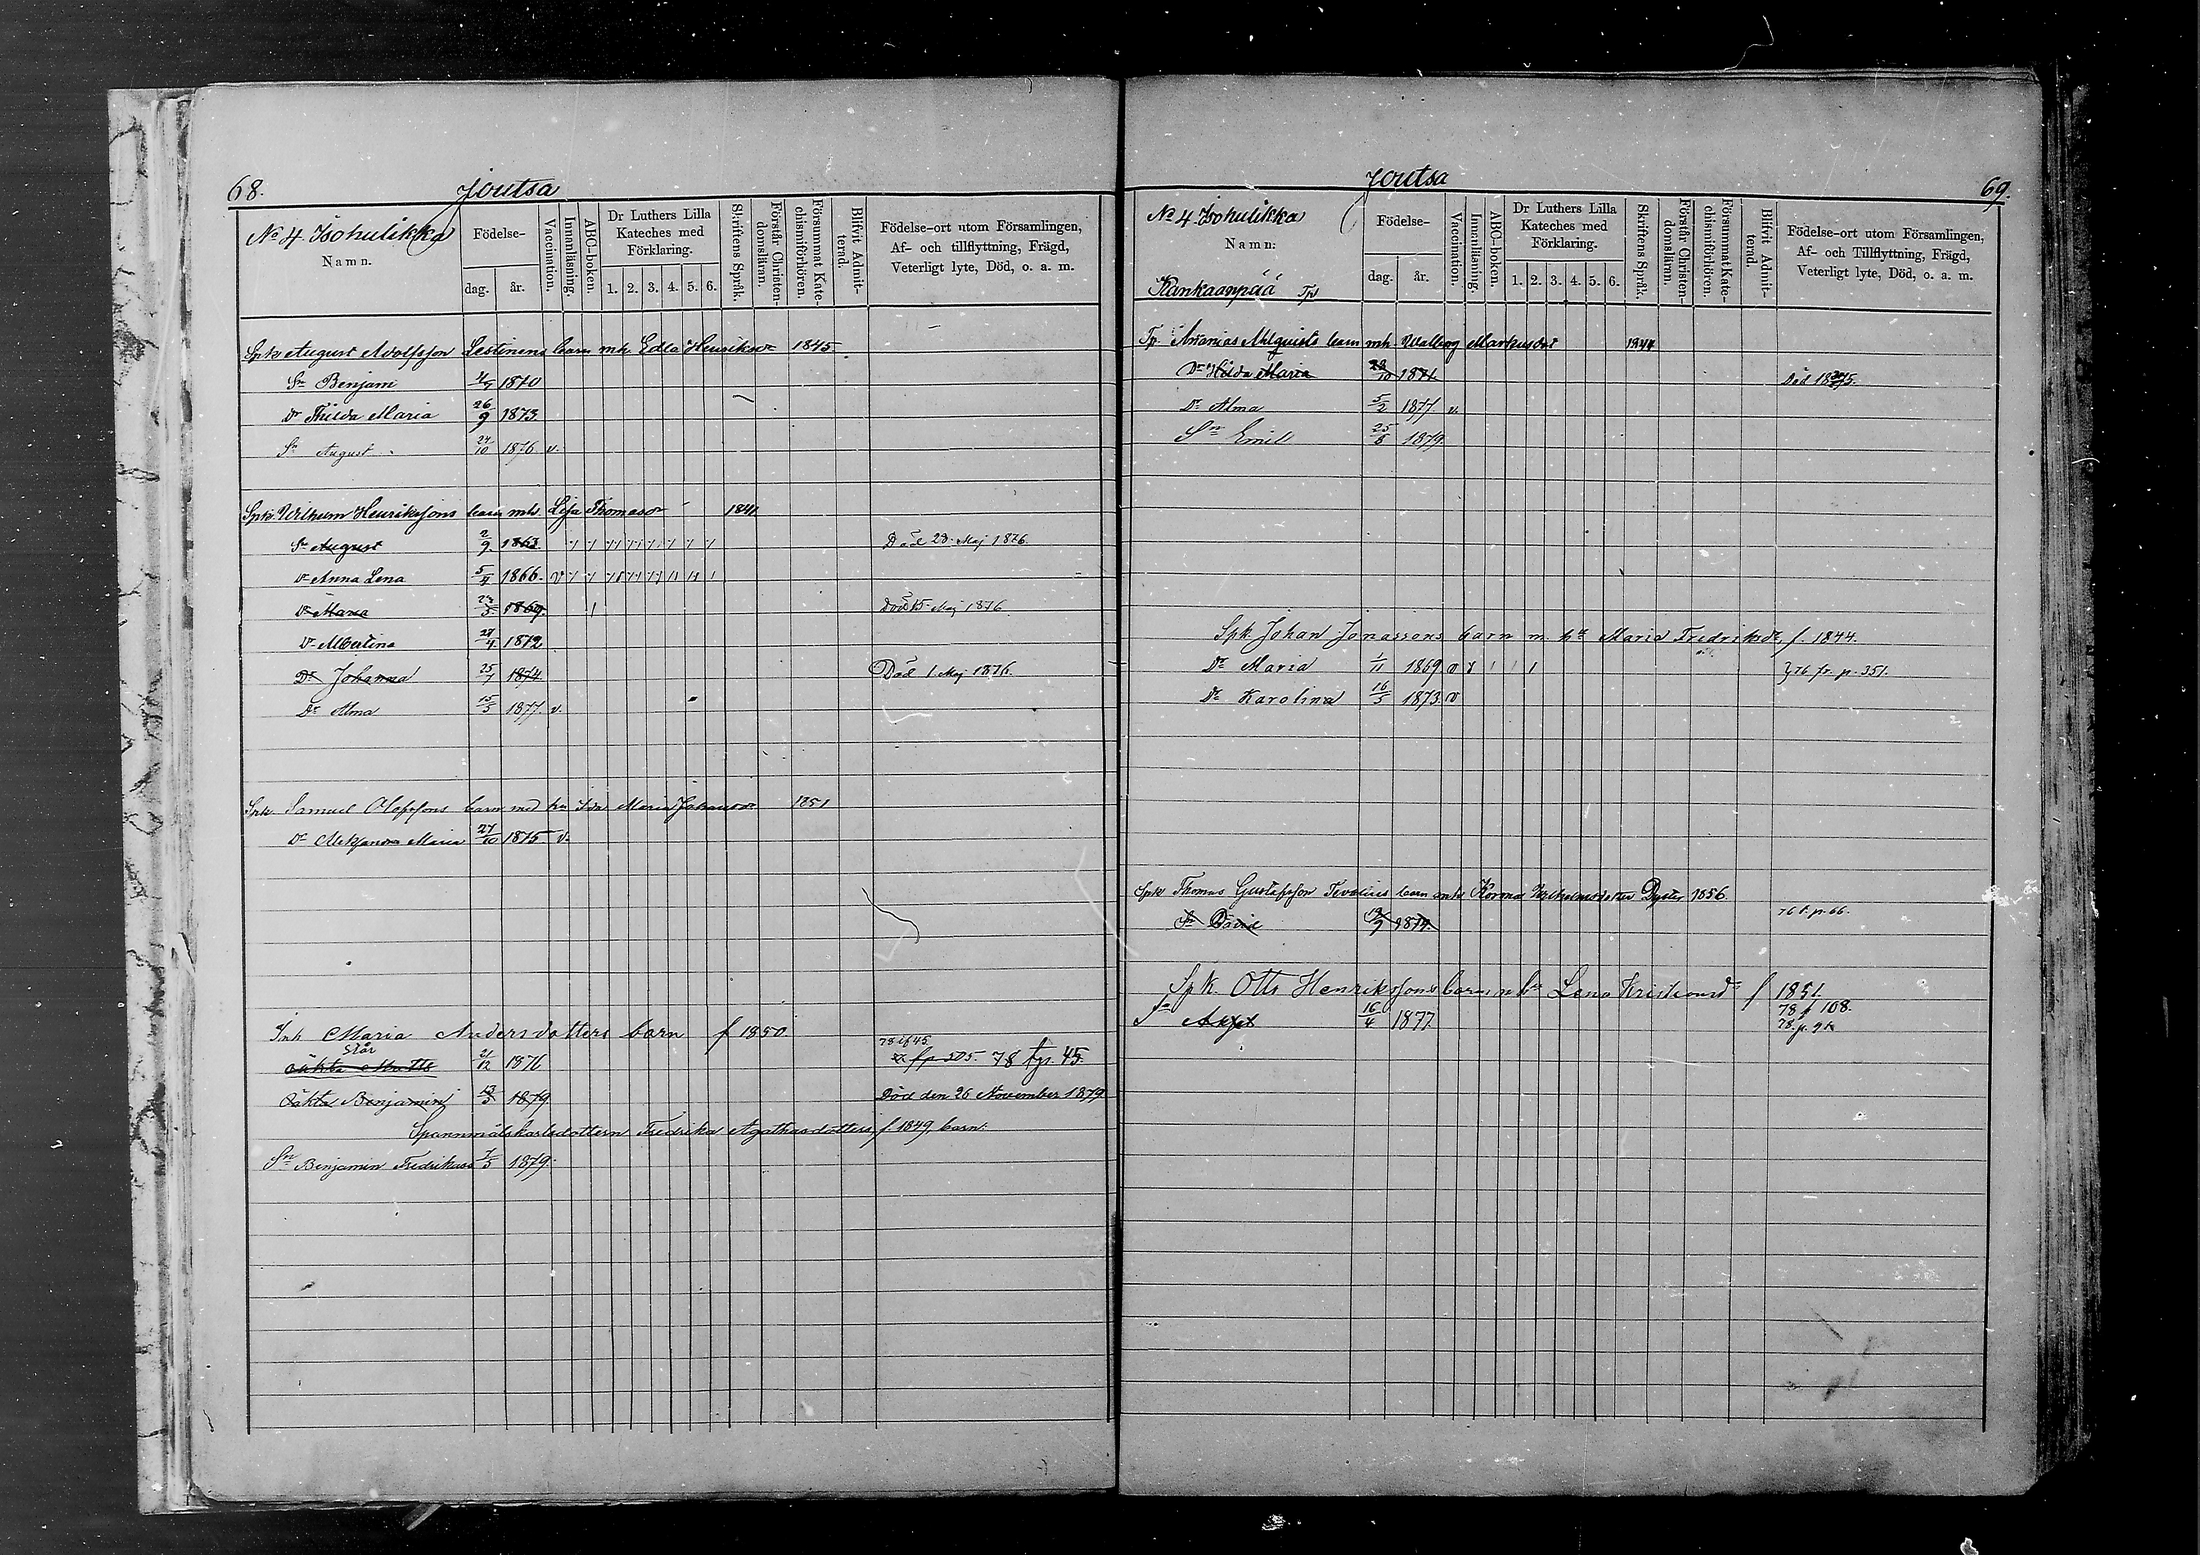 68.
Joutsa
No 4 Isohulikka
Namn.
Födelse-
dag.
år.
Vaccination.
Innanläsning.
ABC-boken.
Dr Luthers Lilla Kateches med Förklaring.
1. 2. 3. 4. 5. 6.
Skriftens Språk.
Förstår Christendomsläran.
Försummat Katechismiförhören.
Blifvit Admitterad.
Födelse-ort utom Församlingen,
Af- och tillflyttning, Frägd,
Veterligt lyte, Död, o. a. m.
Spk August Adolfsson Lestinens barn mh Edla Henriksdr 1845
Sn Benjam 1870
Dr Hilda Maria 26/9 1873
Sn August 24/10 1876 v.
Spk. Vilhelm Henrikssons barn mh. Lisa Thomasdr 1841
Sn August 2/9 1863. Död 23 Maj 1876
Dr Anna Lena 5/4 1866. v
Dr Maria 1869. Död 15 Maj 1876
Dr Albertina 27/4 1872
Dr Johanna 25/1 1874 Död 1 Maj 1876.
Dr Alma 15/3 1877. v.
Spk. Samuel Olofssons barn med hu Ida Maria Johansdr 1851
Dr Aleksandra Maria 27/10 1875 v.
Inh Maria Andersdotters barn f 1850.
oäkta 21/12 1876 78 t.p. 45.
Oäkta Benjamin 1879 Död den 26 November 1879
Spannmålskarlsdottern Fredrika Agathasdotters, f. 1849, barn:
Sn Benjamin Fredriksson 7/3 1879.
69.
Joutsa
No 4 Isohulikka
Namn:
Kankaanpää Tp
Födelse-
dag.
år.
Vaccination.
Innanläsning.
ABC-boken.
Dr Luthers Lilla Kateches med Förklaring.
1. 2. 3. 4. 5. 6.
Skriftens Språk.
Förstår Christendomsläran.
Försummat Katechismiförhören.
Blifvit Admitterad.
Födelse-ort utom Församlingen,
Af- och Tillflyttning, Frägd,
Veterligt lyte, Död, o. a. m.
Tp. Ananias Ahlquists barn mh. Walborg Markusdr 1844
Dr Hilda Maria 1871 Död 1875.
Dr Alma 5/2 1877 v.
Sn Emil 25/8 1879.
Spk. Johan Jonassons barn m. hu Maria Fredriksdr, f. 1844.
Dr Maria 1/11 1869 v 76 fr. p. 351.
Dr Karolina 16/5 1873 v
Spk Thomas Gustafsson barn mh Dyster 1856.
Sn David 76 t. p. 66.
Spk. Otto Henrikssons barn m hu Lena Kristiansdr f 1851.
Sn Axel 16/4 1877. 78 p 108.